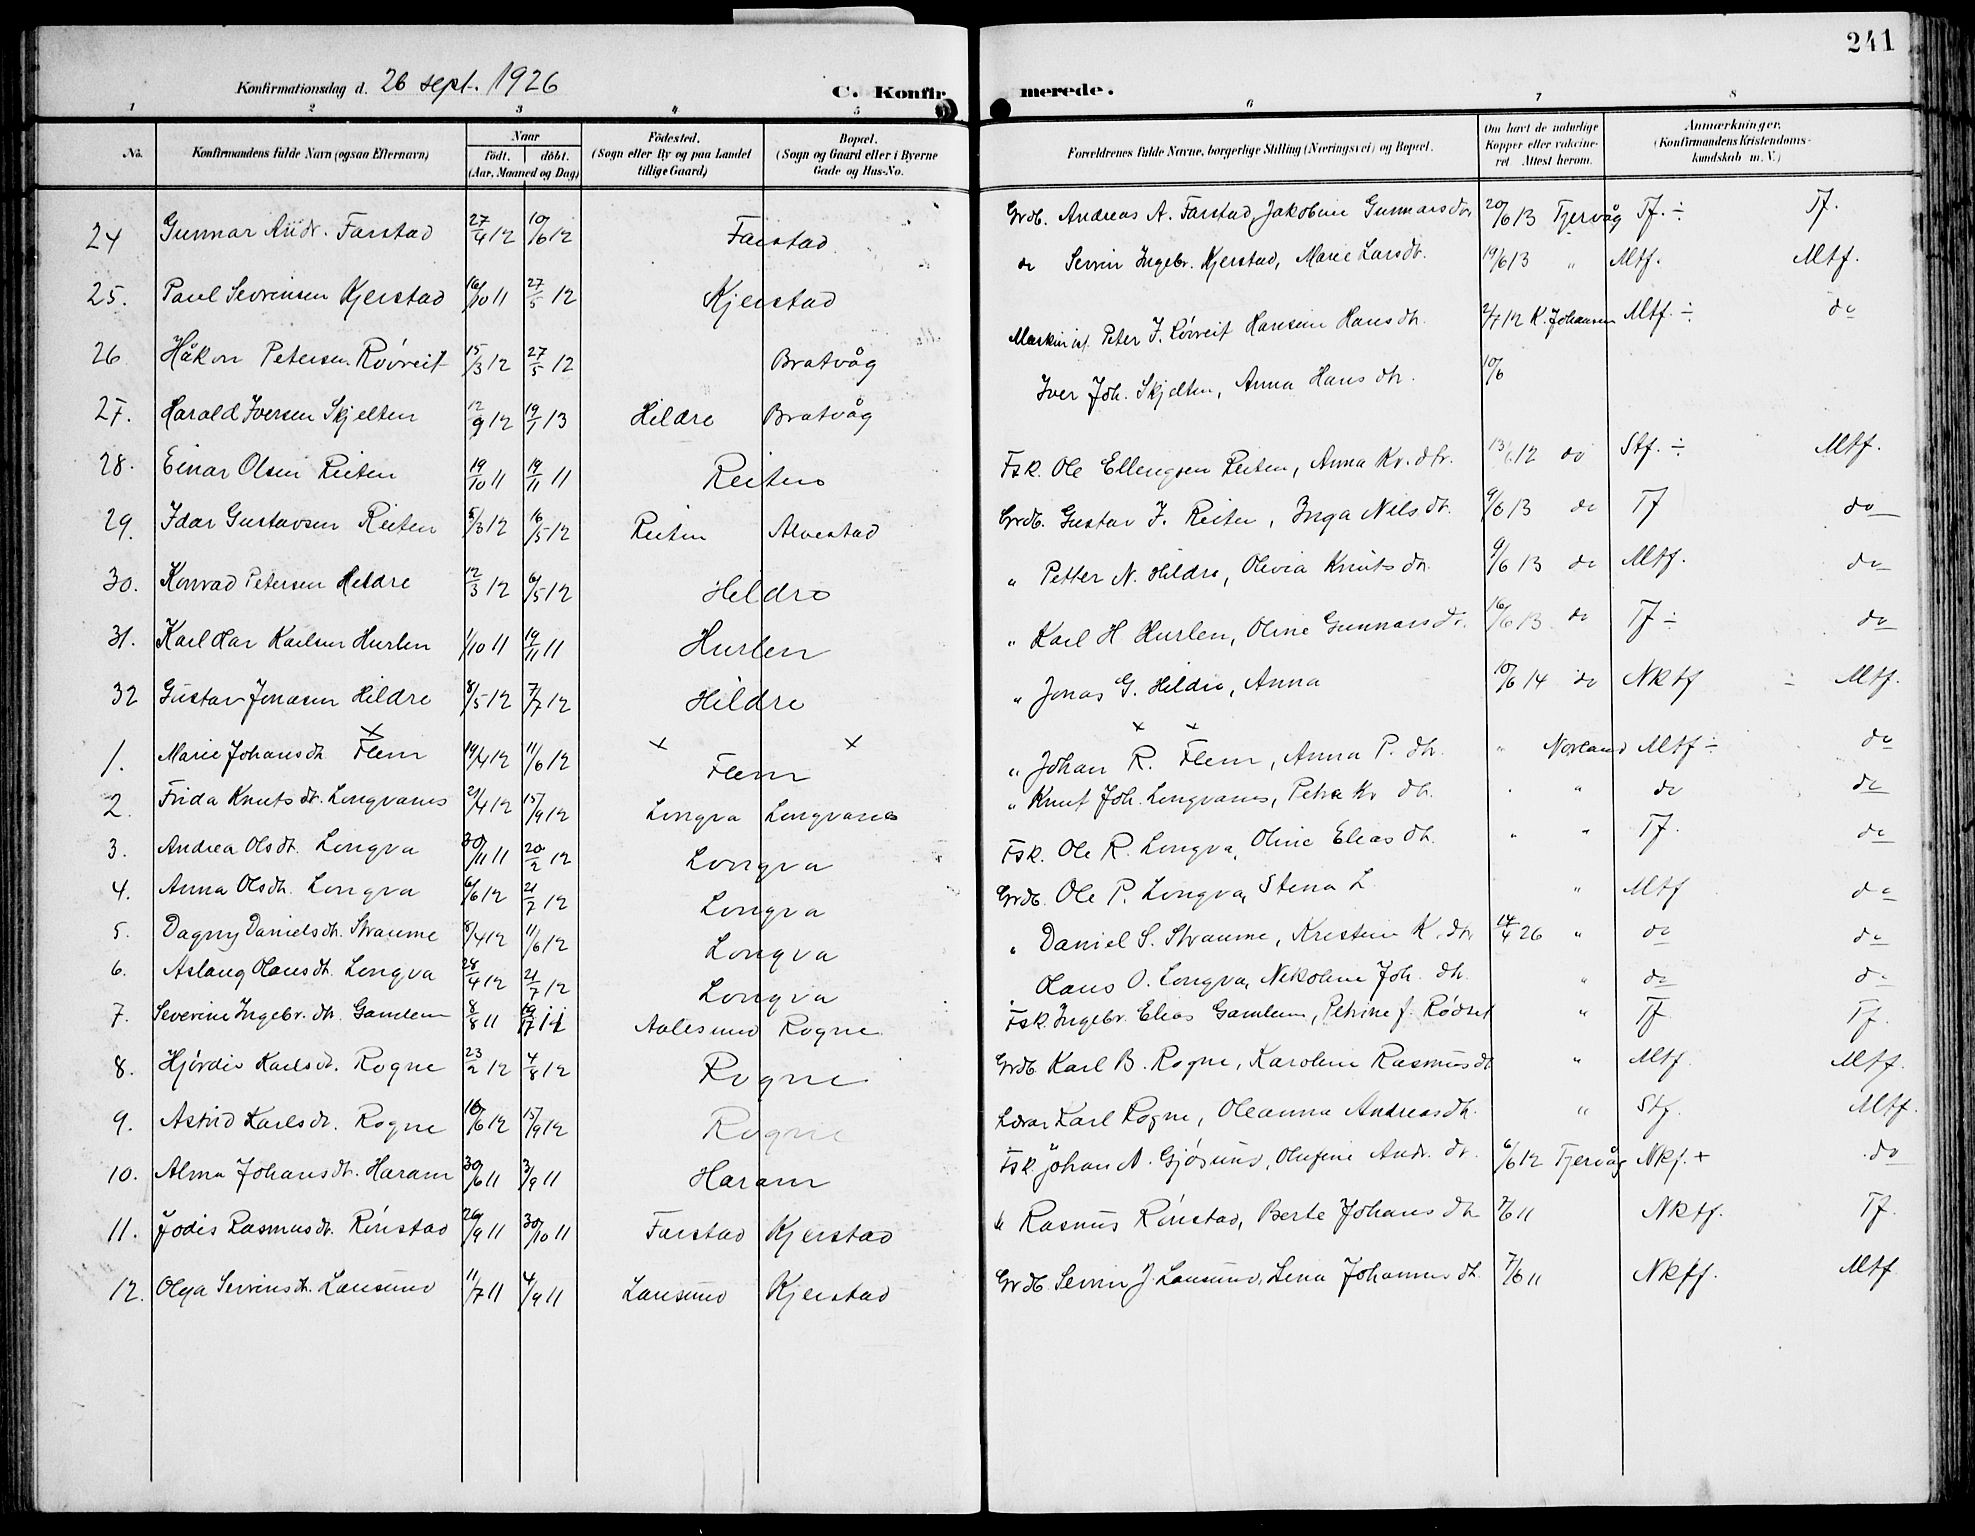 241
Konfirmationsdag d. 26 sept. 1926
C. Konfirmerede.
1 2 3 4 5 6 7 8
No. Konfirmandens fulde Navn (ogsaa Efternavn) Naar født. døbt. (Aar, Maaned og Dag) Fødested. (Sogn eller By og paa Landet tillige Gaard) Bopæl. (Sogn og Gaard eller i Byerne Gade og Hus-No. Forældrenes fulde Navne, borgerlige Stilling (Næringsvei) og Bopæl. Om havt de naturlige Kopper eller vakcineret. Attest herom. Anmærkninger. (Konfirmandens Kristendomskundskab m. V.)
24 Gunnar Andr. Farstad 27/4 12 10/6 12 Farstad Grdb. Andreas A. Farstad, Jakobine Gunnarsdtr 20/6 13 Fjervåg Tf. ÷ Tf.
25. Paul Sevrinsen Kjerstad 16/10 11 27/5 12 Kjerstad do Sevrin Ingebr. Kjerstad, Marie Larsdt. 19/6 13 " Mtf. Mtf.
26 Håkon Petersen Rövreit 15/3 12 27/5 12 Bratvåg Maskinist Peter J. Rövreit Hansine Hansdtr. 2/7 12 K. Johansen Mtf. ÷ do
27. Harald Iversen Skjelten 12/9 12 19/1 13 Hildre Bratvåg Iver Joh. Skjelten, Anna Hansdtr. 10/6
28. Einar Olsen Reiten 19/10 11 19/11 11 Reiten Fsk. Ole Ellengsen Reiten, Anna Kr. dtr. 12 do Stf. ÷ Mtf.
29. Idar Gustavsen Reiten 5/3 12 16/5 12 Reiten Alvestad Grdb. Gustav J. Reiten, Inga Nilsdt. 9/6 13 do Tf do
30. Konrad Petersen Hildre 12/3 12 6/5 12 Hildre " Petter N. Hildre, Olivia Knutsdtr. 9/6 13 do Mtf. do
31. Karl Har Karlsen Hurlen 1/10 11 19/11 11 Hurlen " Karl H Hurlen, Oline Gunnarsdtr. 16/6 13 do Tf ÷ do
32 Gustav Jonasen Hildre 8/5 12 7/7 12 Hildre " Jonas G. Hildre, Anna 10/6 14 do Nktf ÷ Mtf.
1. Marie Johansdtr. Flem 19/4 12 11/6 12 Flem " Johan R. Flem, Anna P. dtr. " Norland Mtf ÷ do
2. Frida Knutsdtr. Longvanes 21/4 12 15/9 12 Longva Longvanes " Knut Joh. Longvanes, Petra Kr dtr. " " do do
3. Andrea Olsdtr. Longva 30/11 11 20/2 12 Longva Fsk. Ole R. Longva, Oline Eliasdtr. " " Tf. do
4. Anna Olsdtr. Longva 6/6 12 21/7 12 Longva Grdb. Ole P. Longva, Stena L. " Mtf do
5. Dagny Danielsdtr. Straume 8/4 12 11/6 12 Longva " Daniel S. Straume, Kristine K. dtr 14/4 26 " do do
6. Aslaug Hansdtr. Longva 28/4 12 21/7 12 Longva Hans O. Longva, Nikoline Joh. dtr. " do do
7. Severine Ingebr. dtr. Gamlem 8/8 11 Aalesund Rogne Fsk. Ingebr. Elias Gamlem, Petrine J. Rødset " Tf Tf.
8. Hjördis Karlsdt. Rogne 23/2 12 4/8 12 Rogne Grdb. Karl B. Rogne, Karoline Rasmusdtr " Mtf. Mtf.
9. Astrid Karlsdt. Rogne 10/6 12 15/9 12 Rogne Lærer Karl Rogne, Oleanna Andreasdtr. " Stf. Mtf.
10. Alma Johansdtr. Haram 30/6 11 3/9 11 Haram Fsk. Johan A. Gjøsund, Olufine Andr. dtr. 6/6 12 Fjervåg Nkf. + do
11. Jödis Rasmusdtr. Rönstad 26/9 11 30/10 11 Farstad Kjerstad " Rasmus Rönstad, Berte Johansdtr 7/6 11 Nktf. Tf.
12. Olga Sevrinsdtr. Lausund 11/7 11 4/9 11 Lausund Kjerstad Grdb. Sevrin J. Lausund, Lena Johannesdtr. 7/6 11 Nktf. Mtf